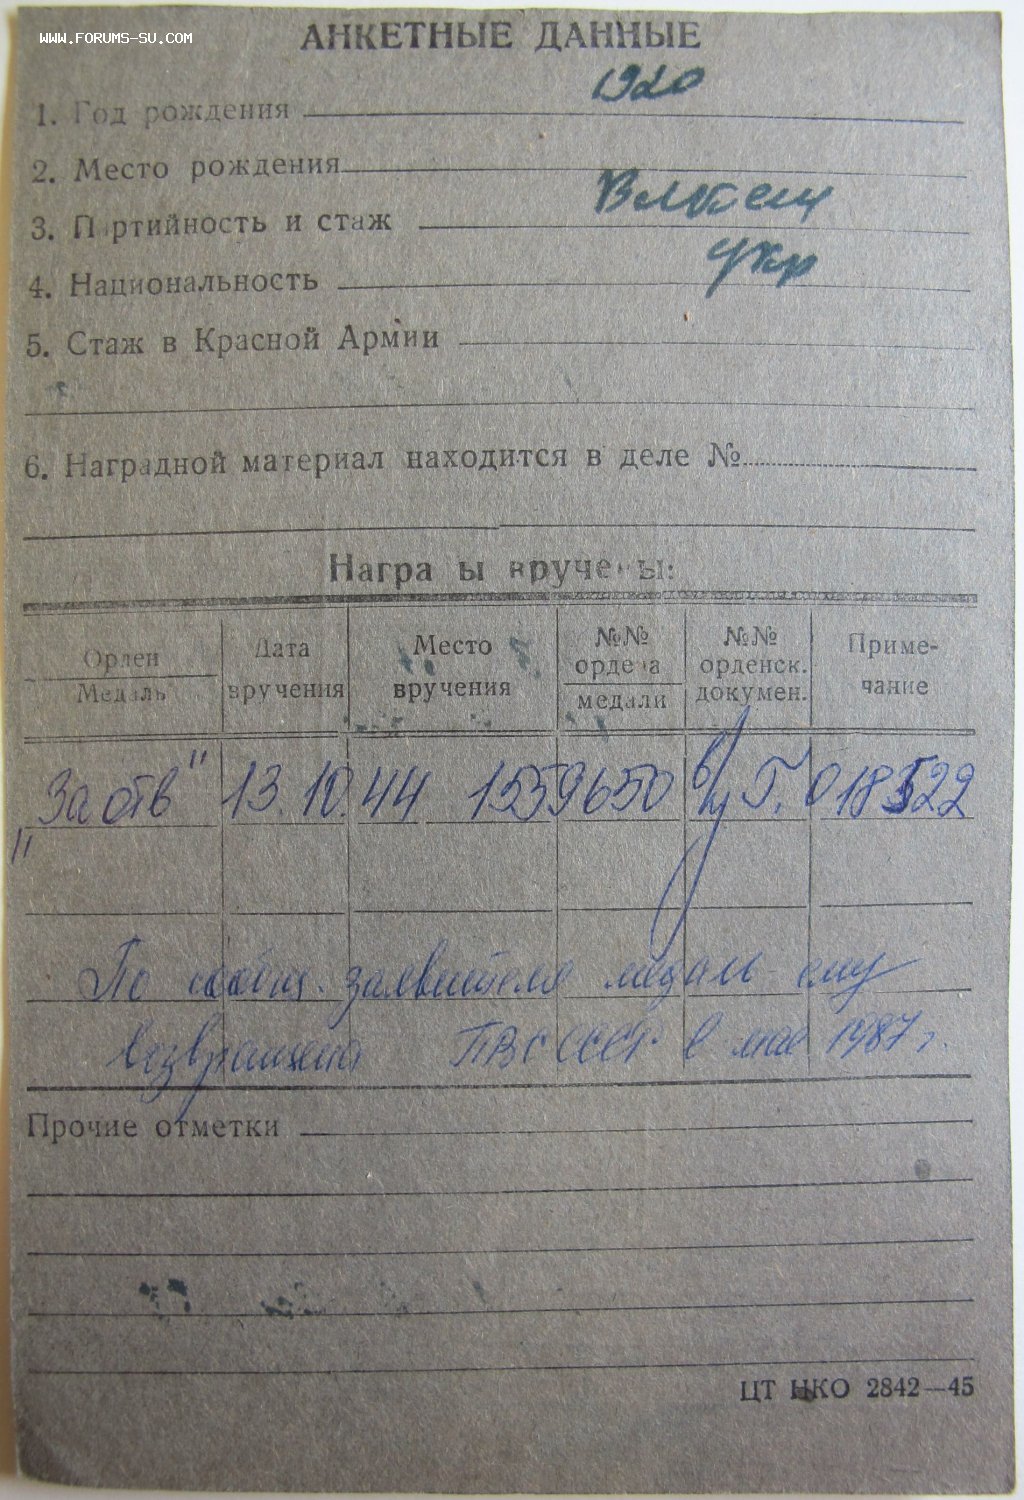 WWW.FORUMS-SU.COM
АНКЕТНЫЕ ДАННЫЕ
1920
1. Год рождения
2. Место рождения
3. Партийность и стаж
укр
4. Национальность
5. Стаж в Красной Армии
6. Наградной материал находится в деле №
Награ ы вруче ы:
Орден Медаль
Дата вручения
Место вручения
№№ ордена медали
№№ орденск. докумен.
Приме- чание
"За отв" 13.10.44 1559650 в/у Г. 018522
По сообщ. заявителя медаль ему
возвращена ПВС СССР в мае 1987 г.
Прочие отметки
ЦТ НКО 2842—45